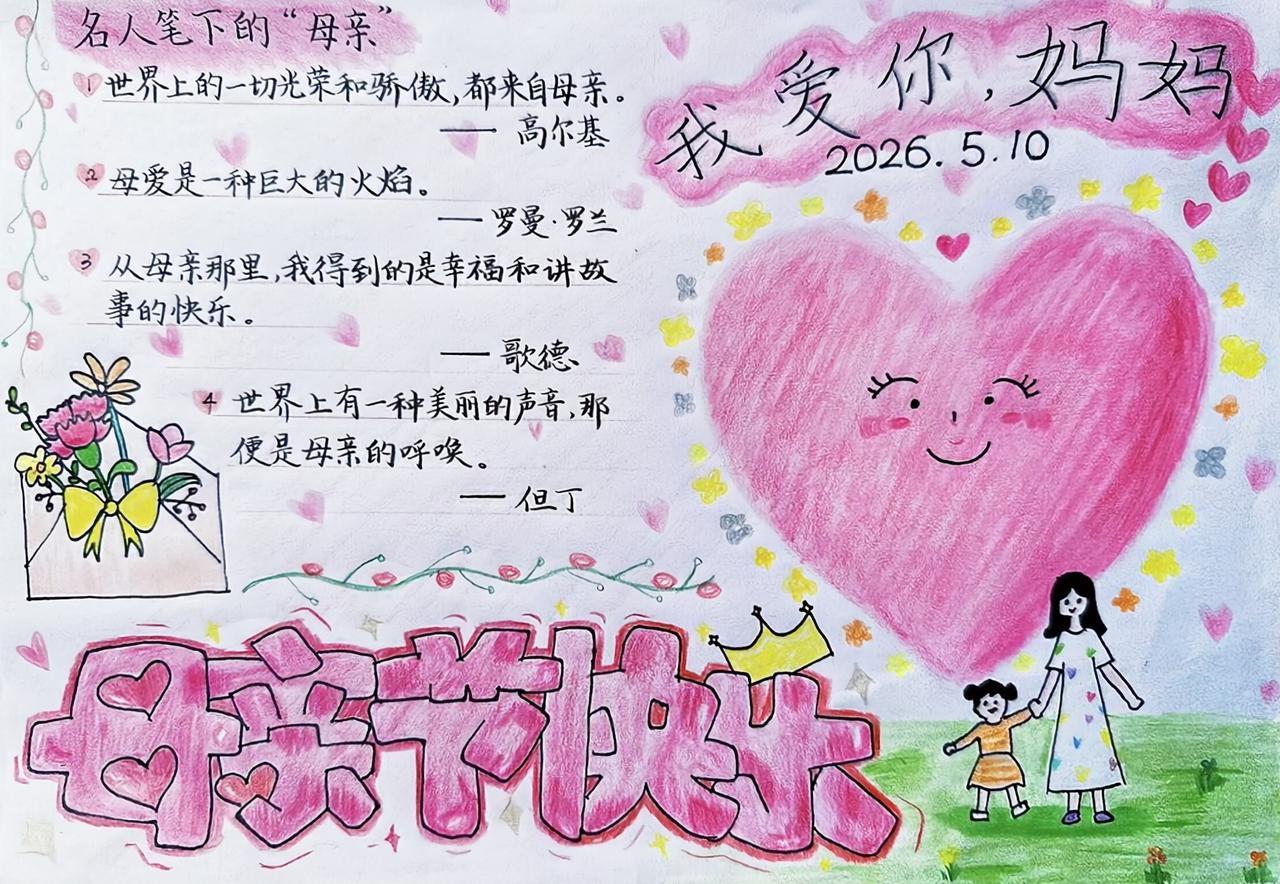 名人笔下的“母亲”
1 世界上的一切光荣和骄傲，都来自母亲。
—— 高尔基
2 母爱是一种巨大的火焰。
—— 罗曼·罗兰
3 从母亲那里，我得到的是幸福和讲故
事的快乐。
—— 歌德
4 世界上有一种美丽的声音，那
便是母亲的呼唤。
—— 但丁
我爱你，妈妈
2026.5.10
母亲节快乐